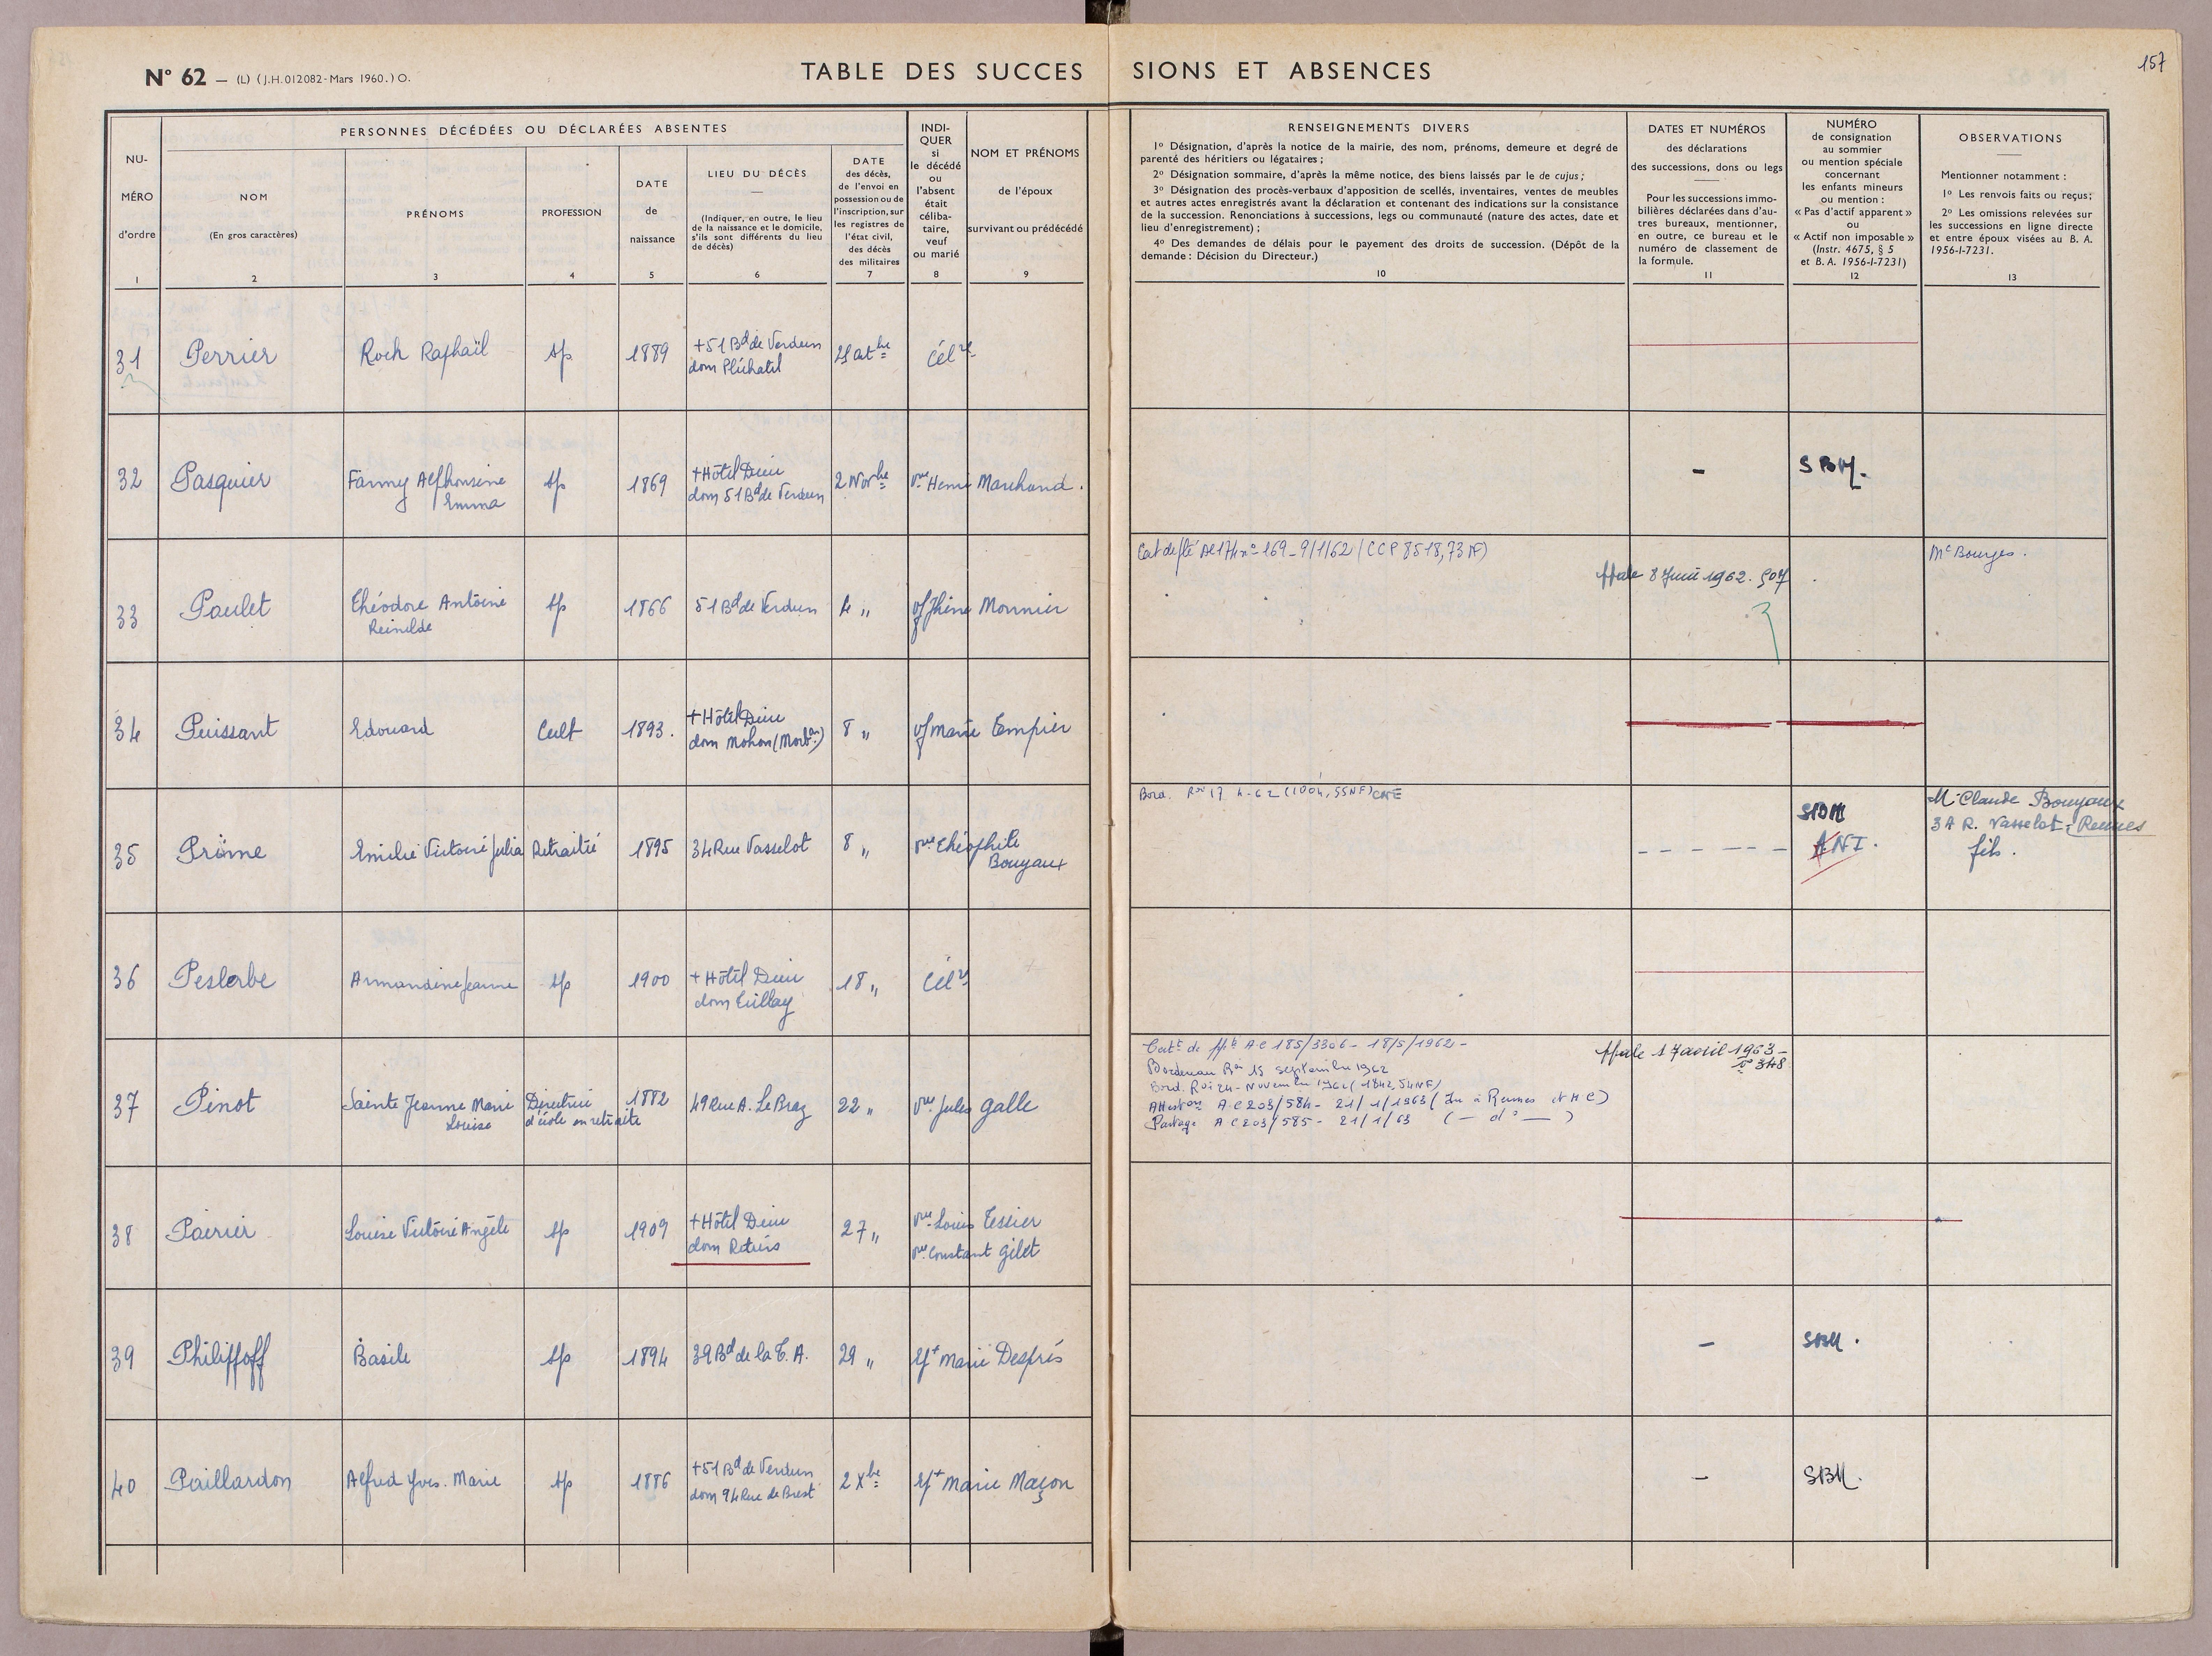 157
N° 62 — (L) (J.H.012082-Mars 1960.) O.
TABLE DES SUCCESSIONS ET ABSENCES
NU-
MÉRO
d'ordre
1
PERSONNES DÉCÉDÉES OU DÉCLARÉES ABSENTES
NOM
(En gros caractères)
2
PRÉNOMS
3
PROFESSION
4
DATE
de
naissance
5
LIEU DU DÉCÈS
(Indiquer, en outre, le lieu
de la naissance et le domicile,
s'ils sont différents du lieu
de décès)
6
DATE
des décès,
de l'envoi en
possession ou de
l'inscription, sur
les registres de
l'état civil,
des décès
des militaires
7
INDI-
QUER
si
le décédé
ou
l'absent
était
céliba-
taire,
veuf
ou marié
8
NOM ET PRÉNOMS
de l'époux
survivant ou prédécédé
9
RENSEIGNEMENTS DIVERS
1° Désignation, d'après la notice de la mairie, des nom, prénoms, demeure et degré de
parenté des héritiers ou légataires ;
2° Désignation sommaire, d'après la même notice, des biens laissés par le de cujus ;
3° Désignation des procès-verbaux d'apposition de scellés, inventaires, ventes de meubles
et autres actes enregistrés avant la déclaration et contenant des indications sur la consistance
de la succession. Renonciations à successions, legs ou communauté (nature des actes, date et
lieu d'enregistrement) ;
4° Des demandes de délais pour le payement des droits de succession. (Dépôt de la
demande : Décision du Directeur.)
10
DATES ET NUMÉROS
des déclarations
des successions, dons ou legs
Pour les successions immo-
bilières déclarées dans d'au-
tres bureaux, mentionner,
en outre, ce bureau et le
numéro de classement de
la formule.
11
NUMÉRO
de consignation
au sommier
ou mention spéciale
concernant
les enfants mineurs
ou mention :
« Pas d'actif apparent »
ou
« Actif non imposable »
(Instr. 4675, § 5
et B. A. 1956-I-7231)
12
OBSERVATIONS
Mentionner notamment :
1° Les renvois faits ou reçus;
2° Les omissions relevées sur
les successions en ligne directe
et entre époux visées au B. A.
1956-I-7231.
13
31 Perrier Roch Raphaïl sp 1889 +51 Bd de Verdun
dom Pléchatel
Cél
32 Pasquier Fanny Alphonsine
Emma
sp 1869 +Hôtel Dieu
dom 51 Bd de Verdun
2 Novbre vve Henri Marchand. - SBM.
33 Paulet Théodore Antoine
Reinilde
sp 1866 51 Bd de Verdun 4 " vf Jhine Monnier
n° 169 - 9/1/62 (CCP 8518,73 NF)
8 Juin 1962. 507
Me Bourges.
34 Puissant Edouard Cult 1893. +Hôtel Dieu
dom Mohon (Morban)
8 " vf Marie Tempier
35 Prôme Emilie Victoire Julia Retraitée 1895 34 Rue Vasselot 8 " vve Théophile
Bouyaux
Bord. Ron 17 4-62 (1004,55NF) CNE
ANI.
M Claude Bouyaux
34 R. Vasselot - Rennes
fils.
36 Peslerbe Armandine Jeanne sp 1900 +Hôtel Dieu
dom Teillay
18 " Cél
37 Pinot Sainte Jeanne Marie
Louise
Directrice
d'école en retraite
1882 49 Rue A. Le Braz 22 " vve Jules Galle
Certt de ppté AC 185/3306 - 18/5/1962 -
Bordereau Ron 15 septembre 1962
Bord. Ron 24 - Novembre 1962 (1842,54NF)
Atteston AC 203/584 - 21/1/1963 (Im à Rennes et MC)
Partage AC 203/585 - 21/1/63 ( — d° — )
17 avril 1963 -
n° 348
38 Poirier Louise Victoire Angèle sp 1909 +Hôtel Dieu
dom Retiers
27 " vve Louis Tessier
vve Constant Gilet
39 Philippoff Basile sp 1894 39 Bd de la T. A. 29 " Marie Després - SBM.
40 Paillardon Alfred Yves. Marie sp 1886 +51 Bd de Verdun
dom 94 Rue de Brest
2 Xbre Marie Maçon - SBM.